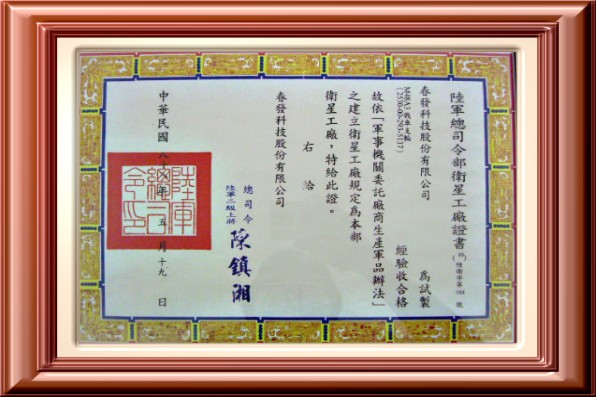 陸軍總司令部衛星工廠證書
陸衛字第 號
春發科技股份有限公司 為試製
戰車支輪
(2530-00-293-5137)
經驗收合格
故依「軍事機關委託廠商生產軍品辦法」
之建立衛星工廠規定為本部
衛星工廠,特給此證。
右 給
春發科技股份有限公司
總司令
陸軍二級上將
陳鎮湘
陸軍總司令印
中華民國八十 年 五月十九日